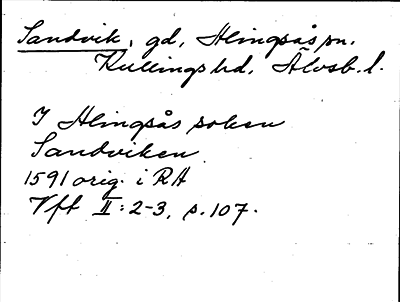 Sandvik, gd, Alingsås sn.
Kullings hd, Älvsb. l.
I Alingsås soken
Sandviken
1591 orig. i RA
Vft II: 2-3, s. 107.